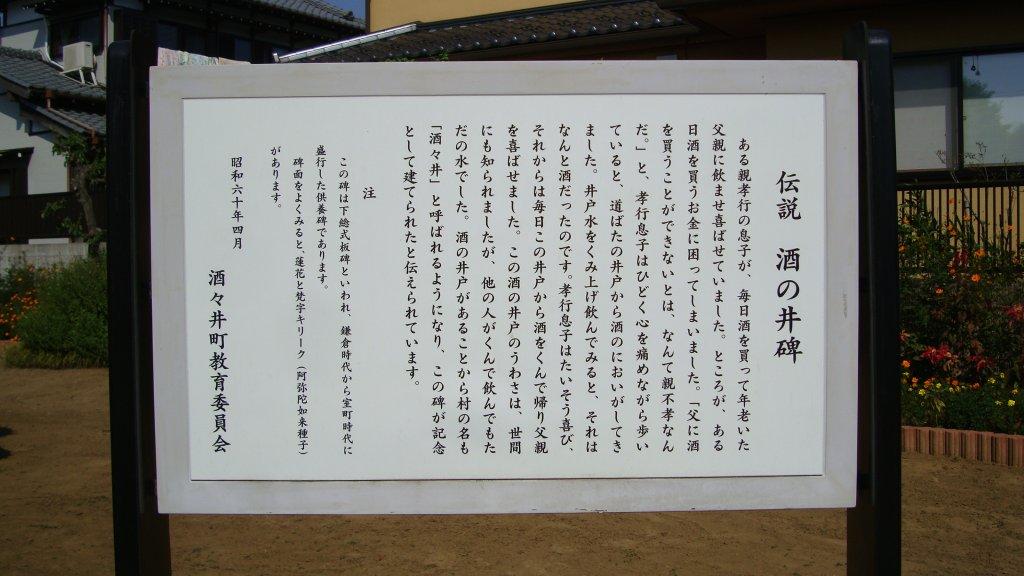 伝説　酒の井碑
ある親孝行の息子が、毎日酒を買って年老いた
父親に飲ませ喜ばせていました。ところが、ある
日酒を買うお金に困ってしまいました。「父に酒
を買うことができないとは、なんて親不孝なん
だ。」と、孝行息子はひどく心を痛めながら歩い
ていると、道ばたの井戸から酒のにおいがしてき
ました。井戸水をくみ上げ飲んでみると、それは
なんと酒だったのです。孝行息子はたいそう喜び、
それからは毎日この井戸から酒をくんで帰り父親
を喜ばせました。この酒の井戸のうわさは、世間
にも知られましたが、他の人がくんで飲んでもた
だの水でした。酒の井戸があることから村の名も
「酒々井」と呼ばれるようになり、この碑が記念
として建てられたと伝えられています。
注
この碑は下総式板碑といわれ、鎌倉時代から室町時代に
盛行した供養碑であります。
碑面をよくみると、蓮花と梵字キリーク（阿弥陀如来種子）
があります。
昭和六十年四月
酒々井町教育委員会